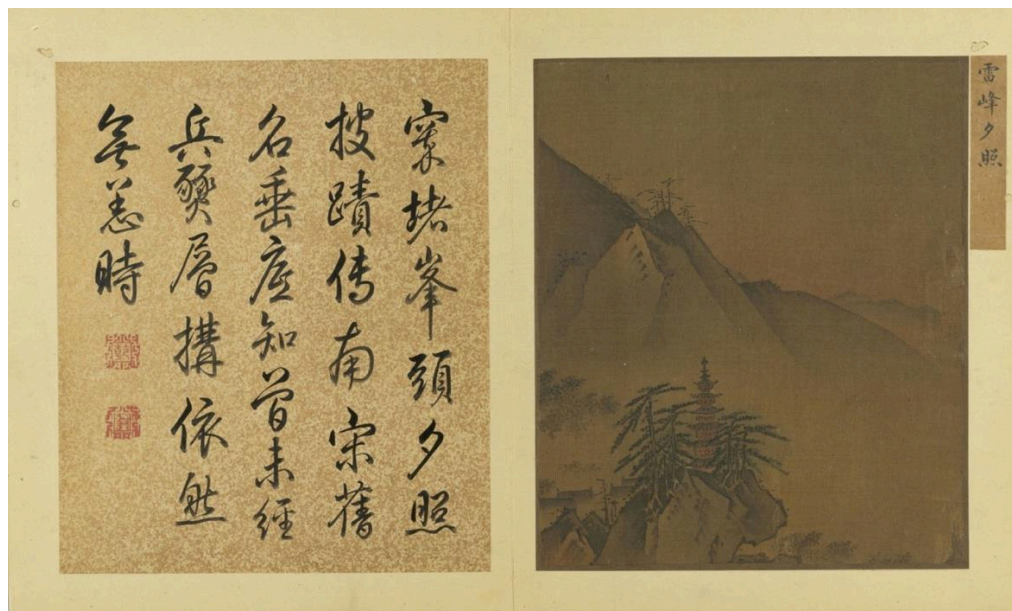 雷峰夕照
窣堵峯頭夕照
披蹟傳南宋舊
名垂底知曾未經
兵燹層構依然
無恙時